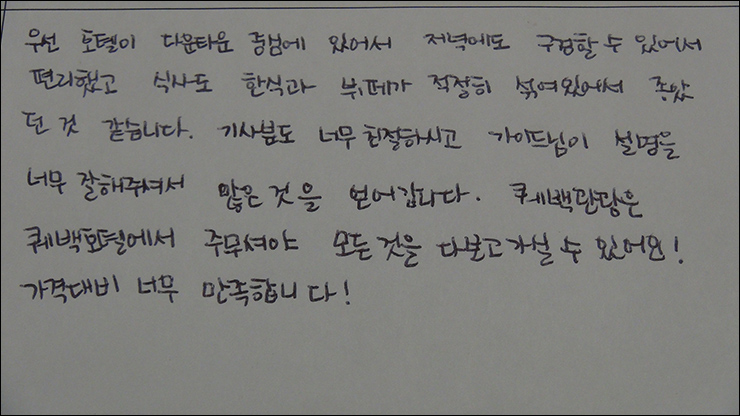 우선 호텔이 다운타운 중심에 있어서 저녁에도 구경할 수 있어서
편리했고 식사도 한식과 부페가 적절히 섞여있어서 좋았
던 것 같습니다. 기사분도 너무 친절하시고 가이드님이 설명을
너무 잘해주셔서 많은 것을 얻어갑니다. 퀘백관광은
퀘백호텔에서 주무셔야 모든것을 다보고가실 수 있어요!
가격대비 너무 만족합니다!